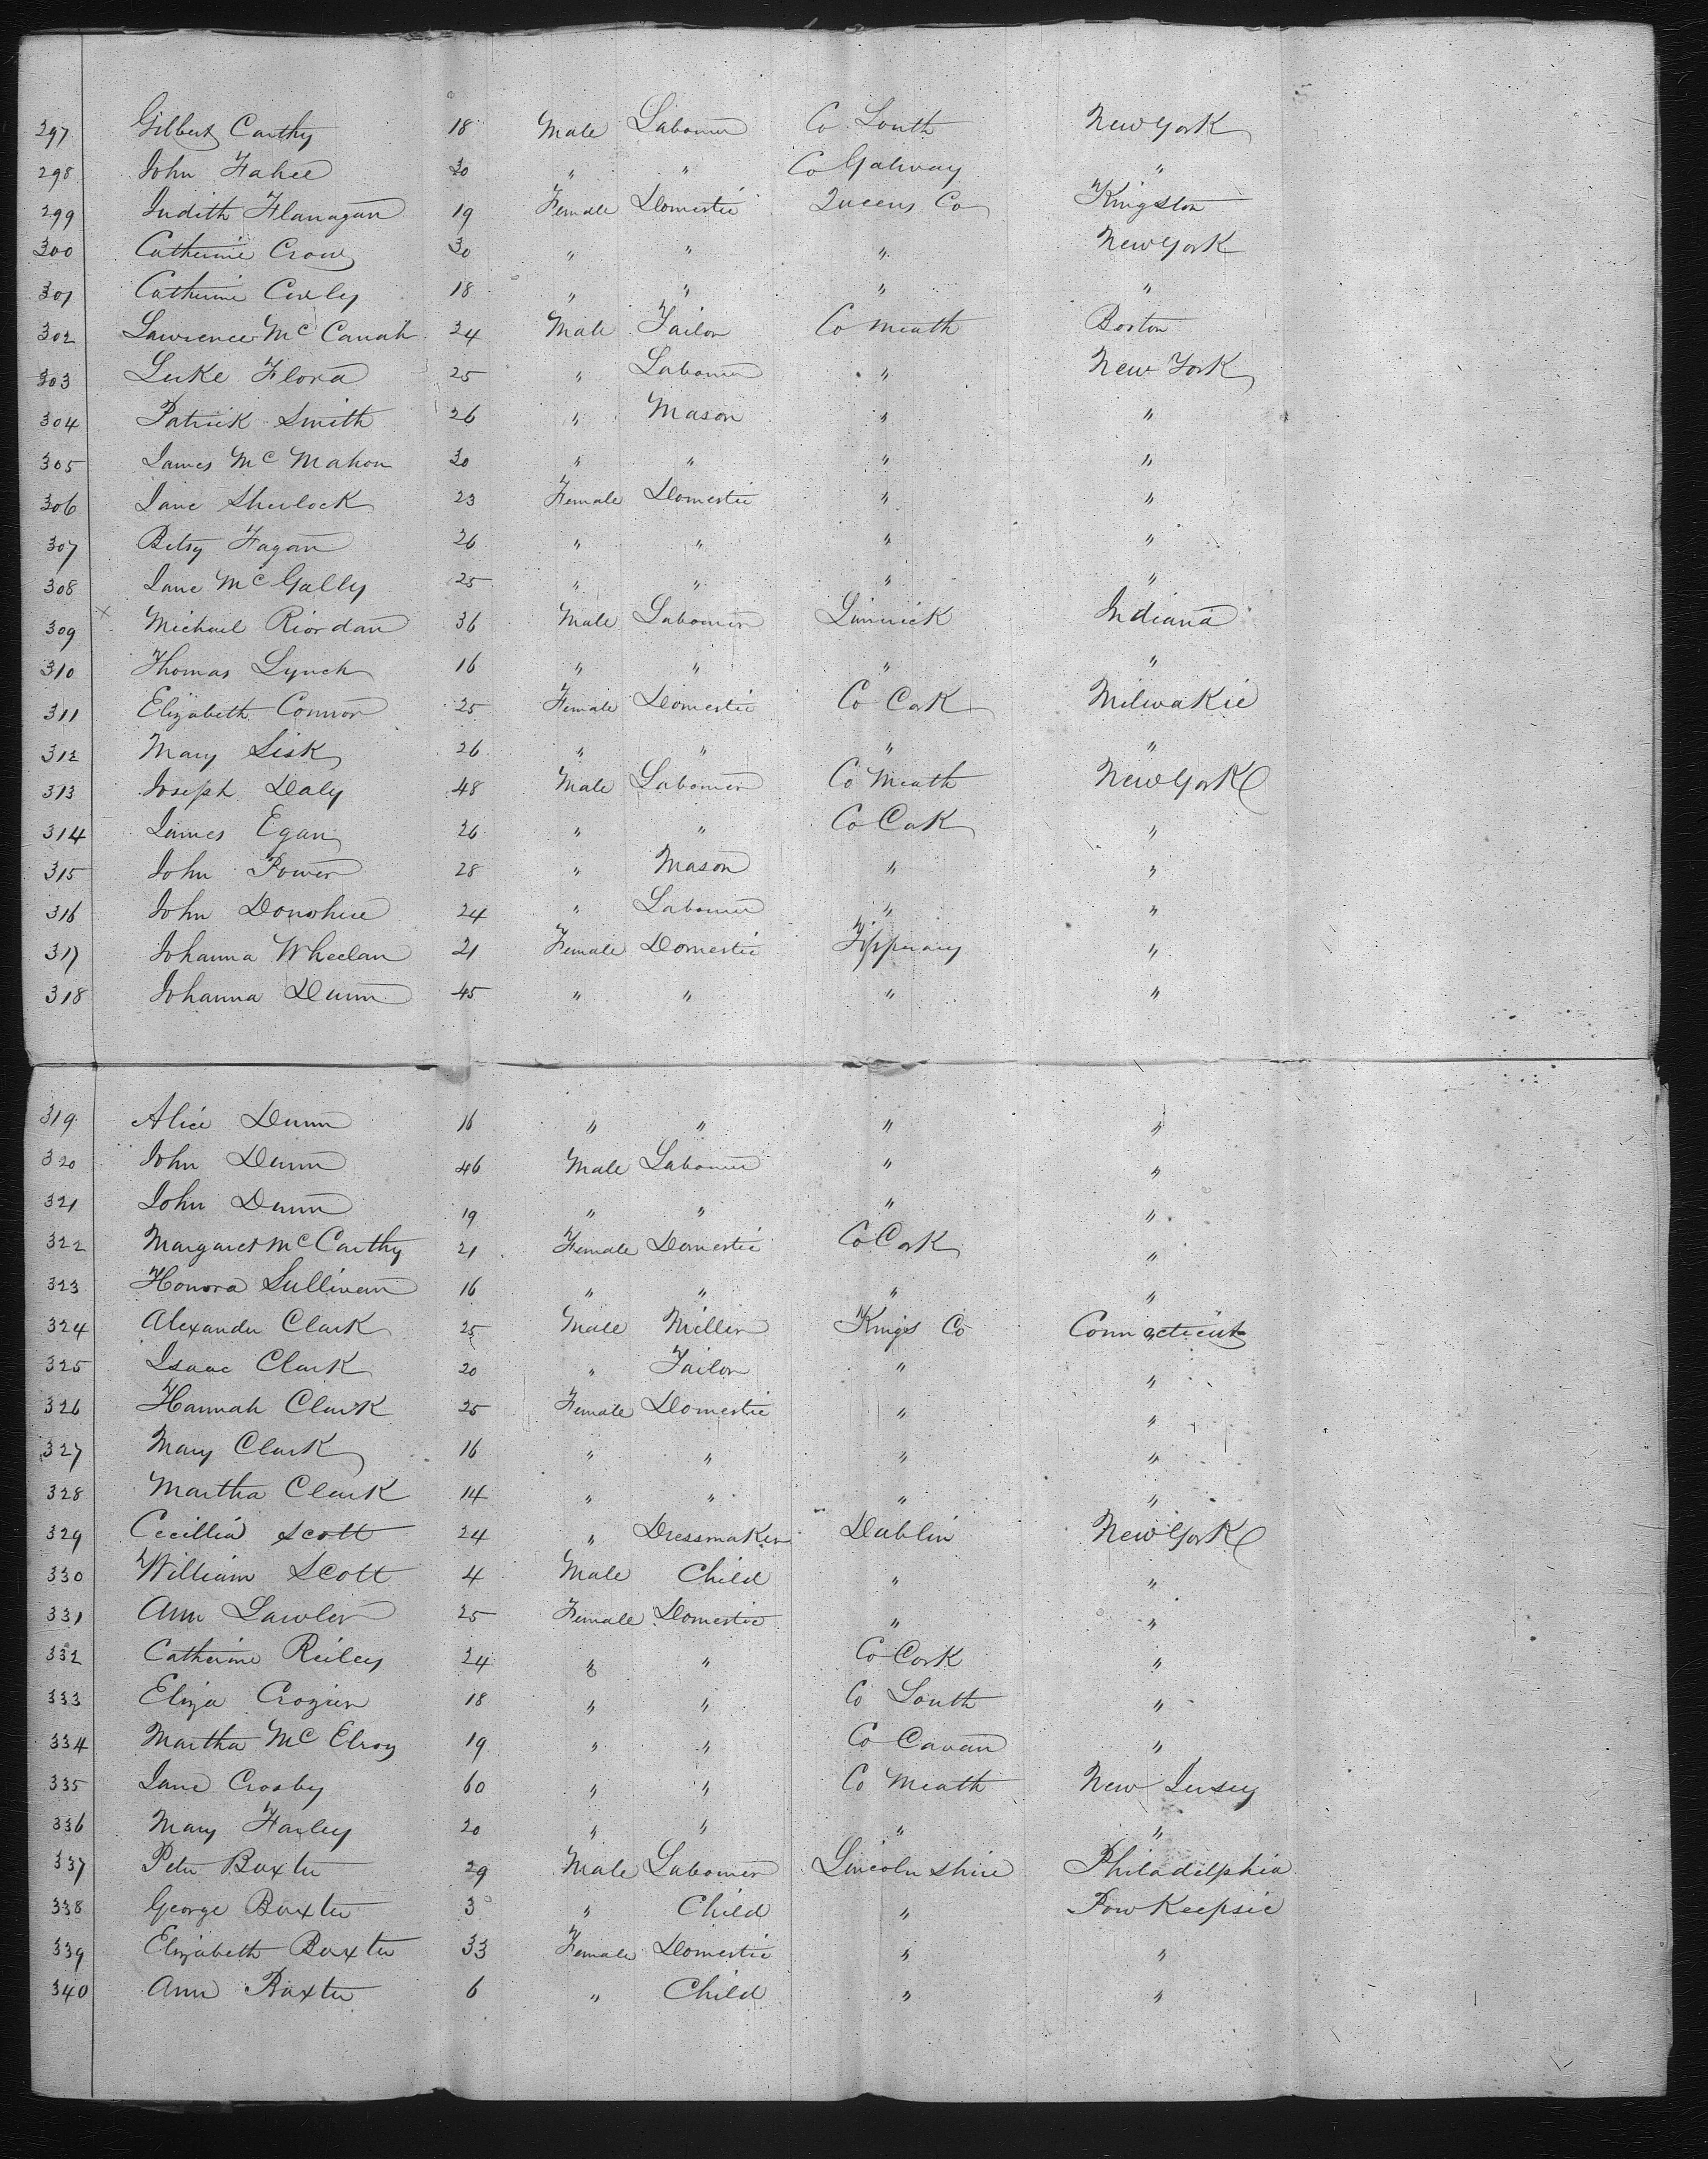 297 Gilbert Carthy 18 Male Labourer Co Louth New York
298 John Fahee 30 " " Co Galway "
299 Judith Flanagan 19 Female Domestic Queens Co Kingston
300 Catherine Crow 30 " " " New York
301 Catherine Conley 18 " " " "
302 Lawrence Mc Canah 24 Male Tailor Co Meath Boston
303 Luke Flora 25 " Labourer " New York
304 Patrick Smith 26 " Mason " "
305 James Mc Mahon 30 " " " "
306 Jane Sherlock 23 Female Domestic " "
307 Betsy Fagan 26 " " " "
308 Jane Mc Gally 25 " " " "
309 Michael Riordan 36 Male Labourer Limrick Indiana
310 Thomas Lynch 16 " " " "
311 Elizabeth Connor 25 Female Domestic Co Cork Milwakie
312 Mary Sisk 26 " " " "
313 Joseph Daly 48 Male Labourer Co Meath New York
314 James Egan 26 " " Co Cork "
315 John Power 28 " Mason " "
316 John Donohue 24 " Labourer " "
317 Johanna Wheelan 21 Female Domestic Tipperary "
318 Johanna Dunn 45 " " " "
319 Alice Dunn 16 " " " "
320 John Dunn 46 Male Labourer " "
321 John Dunn 19 " " " "
322 Margaret Mc Carthy 21 Female Domestic Co Cork "
323 Honora Sullivan 16 " " " "
324 Alexander Clark 25 Male Miller Kings Co Connecticut
325 Isaac Clark 20 " Tailor " "
326 Hannah Clark 25 Female Domestic " "
327 Mary Clark 16 " " " "
328 Martha Clark 14 " " " "
329 Cecillia Scott 24 " Dressmaker Dublin New York
330 William Scott 4 Male Child " "
331 Ann Lawler 25 Female Domestic " "
332 Catherine Reiley 24 " " Co Cork "
333 Eliza Crozier 18 " " Co Louth "
334 Martha Mc Elroy 19 " " Co Cavan "
335 Jane Crosby 60 " " Co Meath New Jersey
336 Mary Farley 20 " " " "
337 Peter Baxter 29 Male Labourer Lincoln shire Philadelphia
338 George Baxter 3 " Child " Pow Keepsie
339 Elizabeth Baxter 33 Female Domestic " "
340 Ann Baxter 6 " Child " "